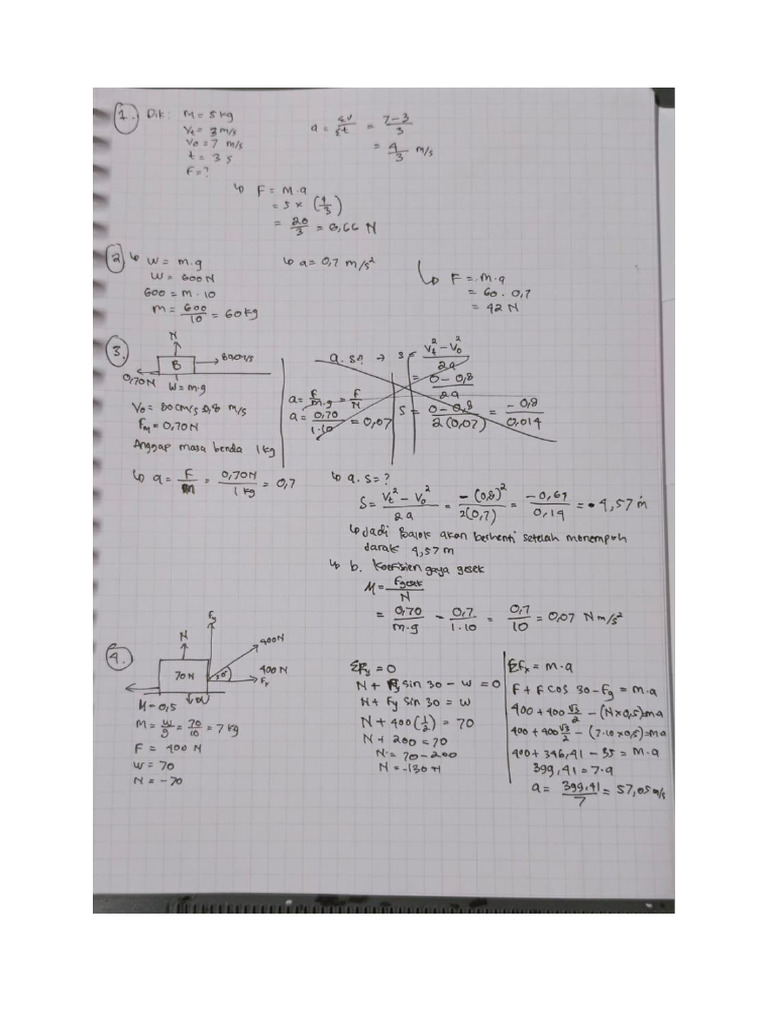 1. Dik: M = 5 kg
Vt = 3 m/s
Vo = 7 m/s
t = 3 s
F = ?
a = ΔV/Δt = 7-3/3
= 4/3 m/s
↳ F = M.a
= 5 x (4/3)
= 20/3 = 6,66 N
2. ↳ W = m.g
W = 600 N
600 = m.10
m = 600/10 = 60 kg
↳ a = 0,7 m/s²
↳ F = m.a
= 60 . 0,7
= 42 N
3.
N
B
0,70 N
W = m.g
Vo = 80 cm/s 0,8 m/s
Fm = 0,70 N
Anggap masa benda 1 kg
↳ a = F/m = 0,70 N/1 kg = 0,7
a = F/m.g = F/N
a = 0,70/1.10 = 0,07
a. s? → s = Vt² - Vo²/2a
= 0 - 0,8/2a
S = 0 - 0,8/2(0,07) = -0,8/0,014
↳ a. s = ?
S = Vt² - Vo²/2a = -(0,8)²/2(0,7) = -0,64/0,14 = - 4,57 m
↳ Jadi Balok akan berhenti setelah menempuh
darak 4,57 m
↳ b. Koefisien gaya gesek
M = Fgesek/N
= 0,70/m.g - 0,7/1.10 = 0,7/10 = 0,07 N m/s²
4.
N
Fy
400N
400 N
Fx
70 N
30°
M = 0,5
M = w/g = 70/10 = 7 kg
F = 400 N
W = 70
N = -70
ΣFy = 0
N + Fy sin 30 - w = 0
N + Fy sin 30 = w
N + 400 (1/2) = 70
N + 200 = 70
N = 70 - 200
N = -130 N
ΣFx = m.a
F + F cos 30 - Fg = m.a
400 + 400 √3/2 - (N x 0,5) = m.a
400 + 400 √3/2 - (7.10 x 0,5) = m.a
400 + 346,41 - 35 = m.a
399,41 = 7.a
a = 399,41/7 = 57,05 m/s